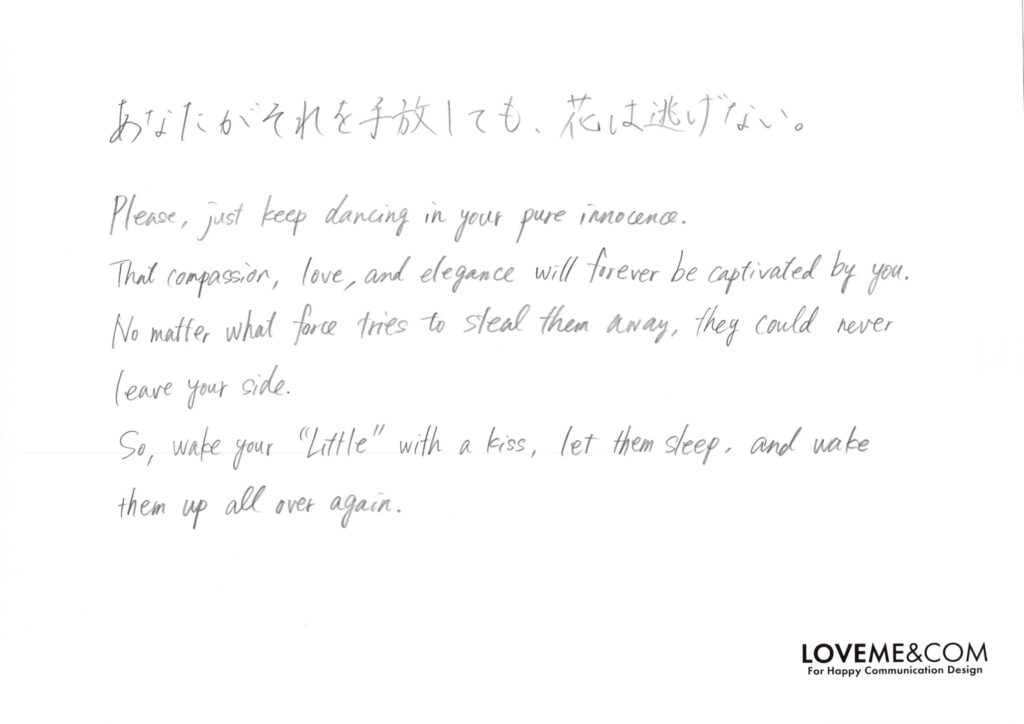 あなたがそれを手放しても、花は逃げない。
Please, just keep dancing in your pure innocence.
That compassion, love, and elegance will forever be captivated by you.
No matter what force tries to steal them away, they could never
leave your side.
So, wake your "Little" with a kiss, let them sleep, and wake
them up all over again.
LOVEME&COM
For Happy Communication Design